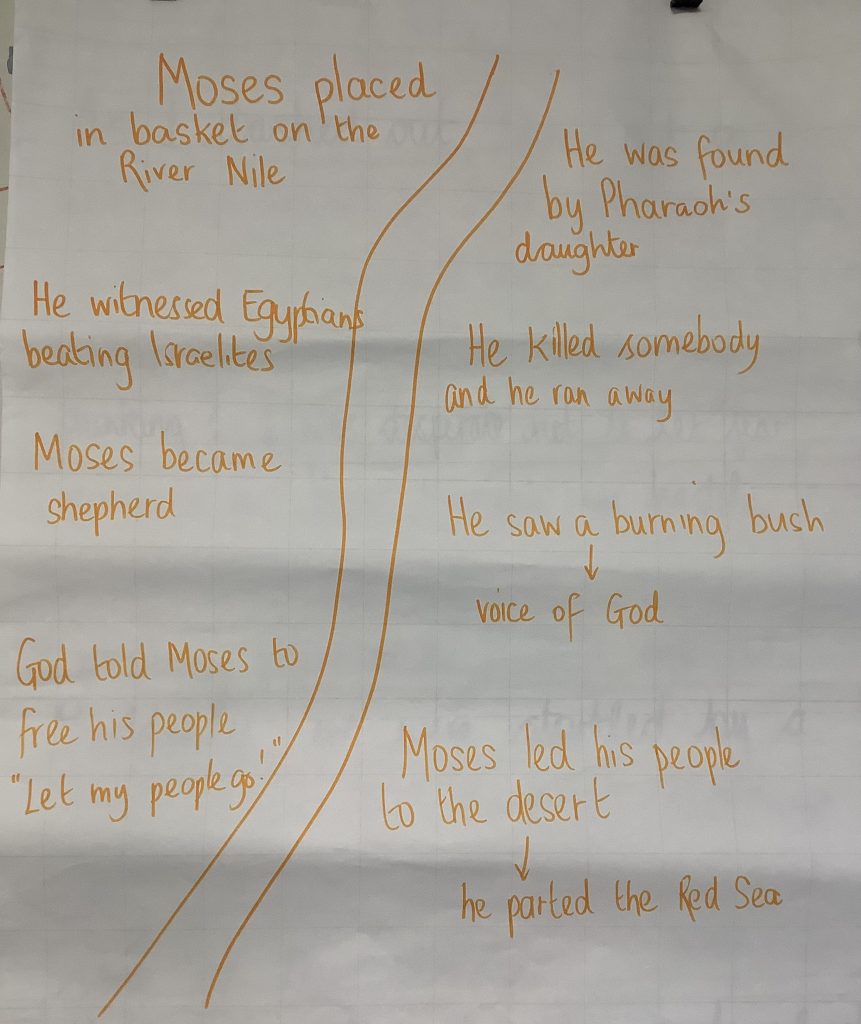 Moses placed
in basket on the
River Nile
He was found
by Pharaoh's
daughter
He witnessed Egyptians
beating Israelites
He killed somebody
and he ran away
Moses became
shepherd
He saw a burning bush
↓
voice of God
God told Moses to
free his people
"Let my people go!"
Moses led his people
to the desert
↓
he parted the Red Sea